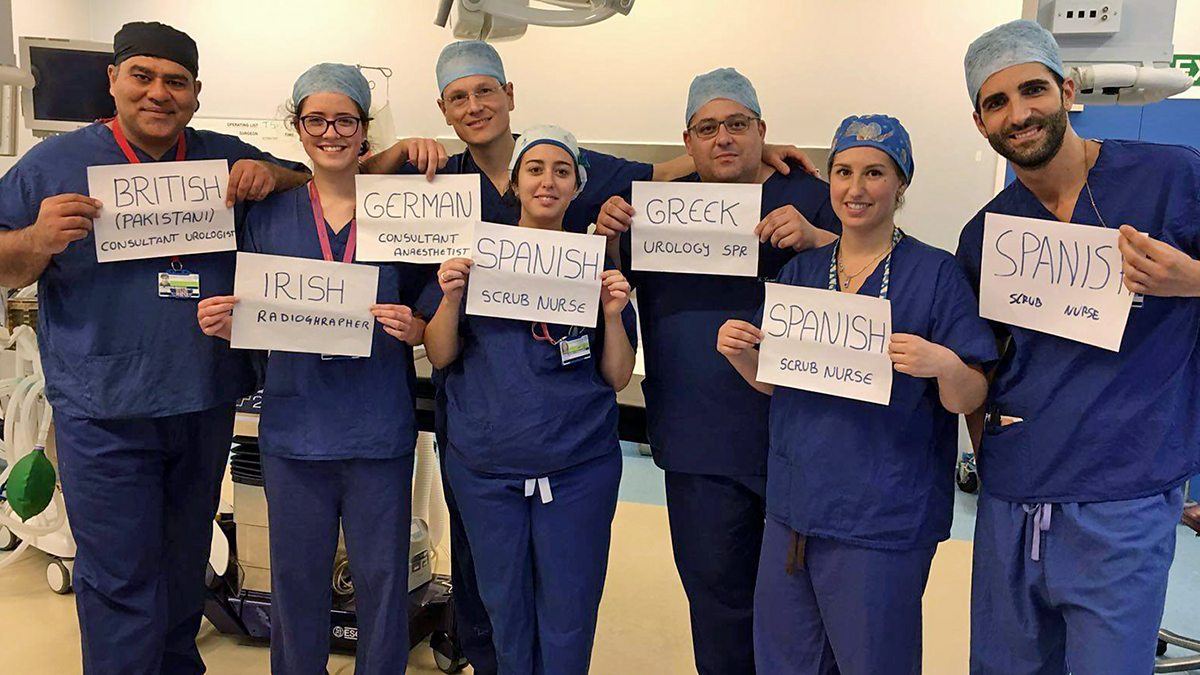 BRITISH
(PAKISTANI)
CONSULTANT UROLOGIST
IRISH
RADIOGHRAPHER
GERMAN
CONSULTANT
ANAESTHETIST
SPANISH
SCRUB NURSE
GREEK
UROLOGY SPR
SPANISH
SCRUB NURSE
SPANIS
SCRUB NURSE
OPERATING LIST
SURGEON
EX